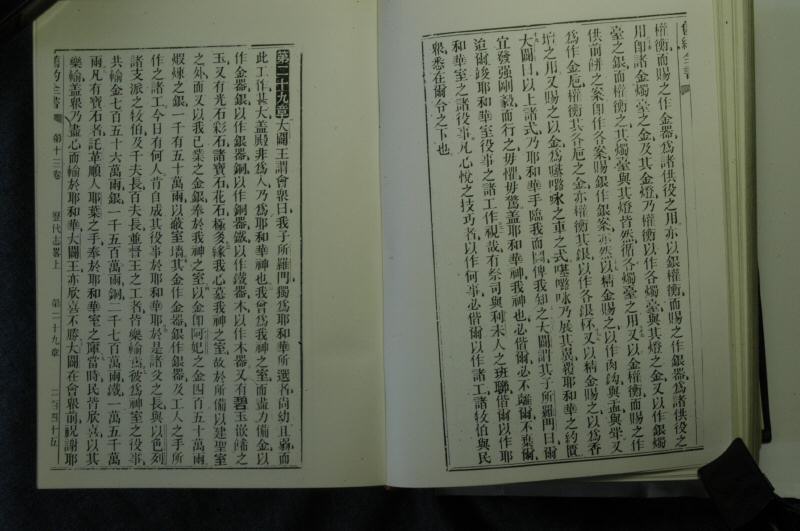 權衡而賜之作金器爲諸供役之用亦以銀權衡而賜之作銀器爲諸供役之
用即諸金燭臺之金及其金燈乃權衡以作各燭臺與其燈之金又以作銀燭
臺之銀而權衡之其燭臺與其燈皆然循各燭臺之用又以金權衡而賜之作
供前餅之案即作各案賜銀作銀案亦然以精金賜之以作肉鈎與盂與斝又
爲作金巵權衡其各巵之金亦權衡其銀以作各銀杯又以精金賜之以爲香
之用又賜之以金爲 之車之式 乃展其翼覆耶和華之約匱
大闢曰以上諸式乃耶和華手臨我而俾我知之大闢謂其子所羅門曰爾
宜發强剛毅而行之毋懼毋驚蓋耶和華神我神也必偕爾必不離爾不棄爾
迨爾竣耶和華室役事之諸工作視哉有祭司與利未人之班聯偕爾以作耶
和華室之諸役事凡心悅之技巧者以作何事必偕爾以作諸工諸牧伯與民
衆悉在爾令之下也
第二十九章大闢王謂會衆曰我子所羅門獨爲耶和華所選者尙幼且弱而
此工作甚大蓋殿非爲人乃爲耶和華神也我曾爲我神之室而盡力備金以
作金器銀以作銀器銅以作銅器鐵以作鐵器木以作木器又有碧玉嵌 之
玉又有光石彩石諸寶石花石極多緣我心慕我神之室故於所備以建聖室
之外而又以我已業之金銀奉於我神之室以金即阿妃之金四百五十萬兩
煆煉之銀一千有五十萬兩以蔽室墻其金作金器銀作銀器及工人之手所
作之諸工今日有何人肯自成其役事於耶和華耶於是諸父之長與以色列
諸支派之牧伯及千夫長百夫長並督王之工者皆樂輸焉彼爲神室之役事
共輸金七百五十六萬兩銀一千五百萬兩銅二千七百萬兩鐵一萬五千萬
兩凡有寶石者託革順人耶葉之手奉於耶和華室之庫當時民皆欣喜以其
樂輸蓋衆乃盡心而輸於耶和華大闢王亦欣喜不勝大闢在會衆前祝謝耶
第十三卷 歷代志畧上 第二十九章